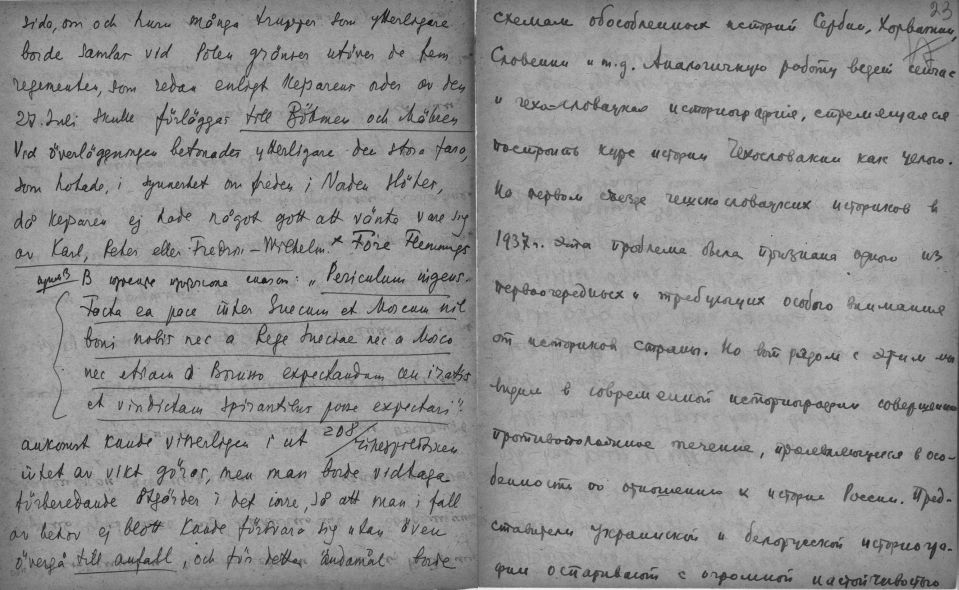 sida, om och huru många trupper som ytterligare
borde samlas vid Polens gränser utöver de fem
regementen, som redan enligt Kejsarens order av den
27. Juli skulle förläggas till Böhmen och Mähren
Vid överläggningen betonades ytterligare den stora fara,
som hotade, i synnerhet om freden i Norden slöts,
då Kejsaren ej hade något gott att vänta vare sig
av Karl, Peter eller Fredrik-Wilhelm.* Före Flemmings
В протоколе сказано: „Periculum ingens
Facta ea pace inter Suecum et Moscum nil
boni nobis nec a Rege Sueciae nec a Mosco
nec etiam a Borusso expectandum ceu iratis
et vindictam spirantibus posse expectari".
ankomst kunde visserligen i ut 208/
intet av vikt göras, men man borde vidtaga
förberedande åtgärder i det inre, så att man i fall
av behov ej blott kunde försvara sig utan även
övergå till anfall, och för detta ändamål borde
23
схемам обособленных историй Сербии, Хорватии,
Словении и т.д. Аналогичную работу ведет сейчас
и чехо-словацкая историография, стремящаяся
построить курс истории Чехословакии как целого.
На первом съезде чешскословацких историков в
1937 г. эта проблема была признана одною из
первоочередных и требующих особого внимания
от историков страны. Но вот рядом с этим мы
видим в современной историографии совершенно
противоположное течение, проявляющееся в осо-
бенности по отношению к истории России. Пред-
ставители украинской и белорусской историогра-
фии оспаривают с огромной настойчивостью